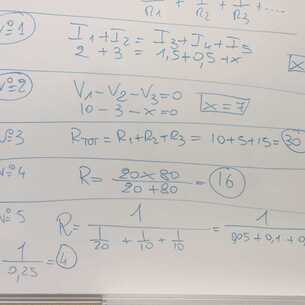 R1 + R2 + R3 + ....
Nº1 I1+I2 = I3+I4+I5
2 + 3 = 1,5+0,5+x
x
Nº2 V1-V2-V3=0
10 - 3 - x=0 x=7
Nº3 RTOT = R1+R2+R3 = 10+5+15= 30
Nº4 R= 20x80 / 20+80 = 16
Nº5 R= 1 / 1/20 + 1/10 + 1/10 = 1 / 0,05+0,1+0,
1 / 0,25 = 4